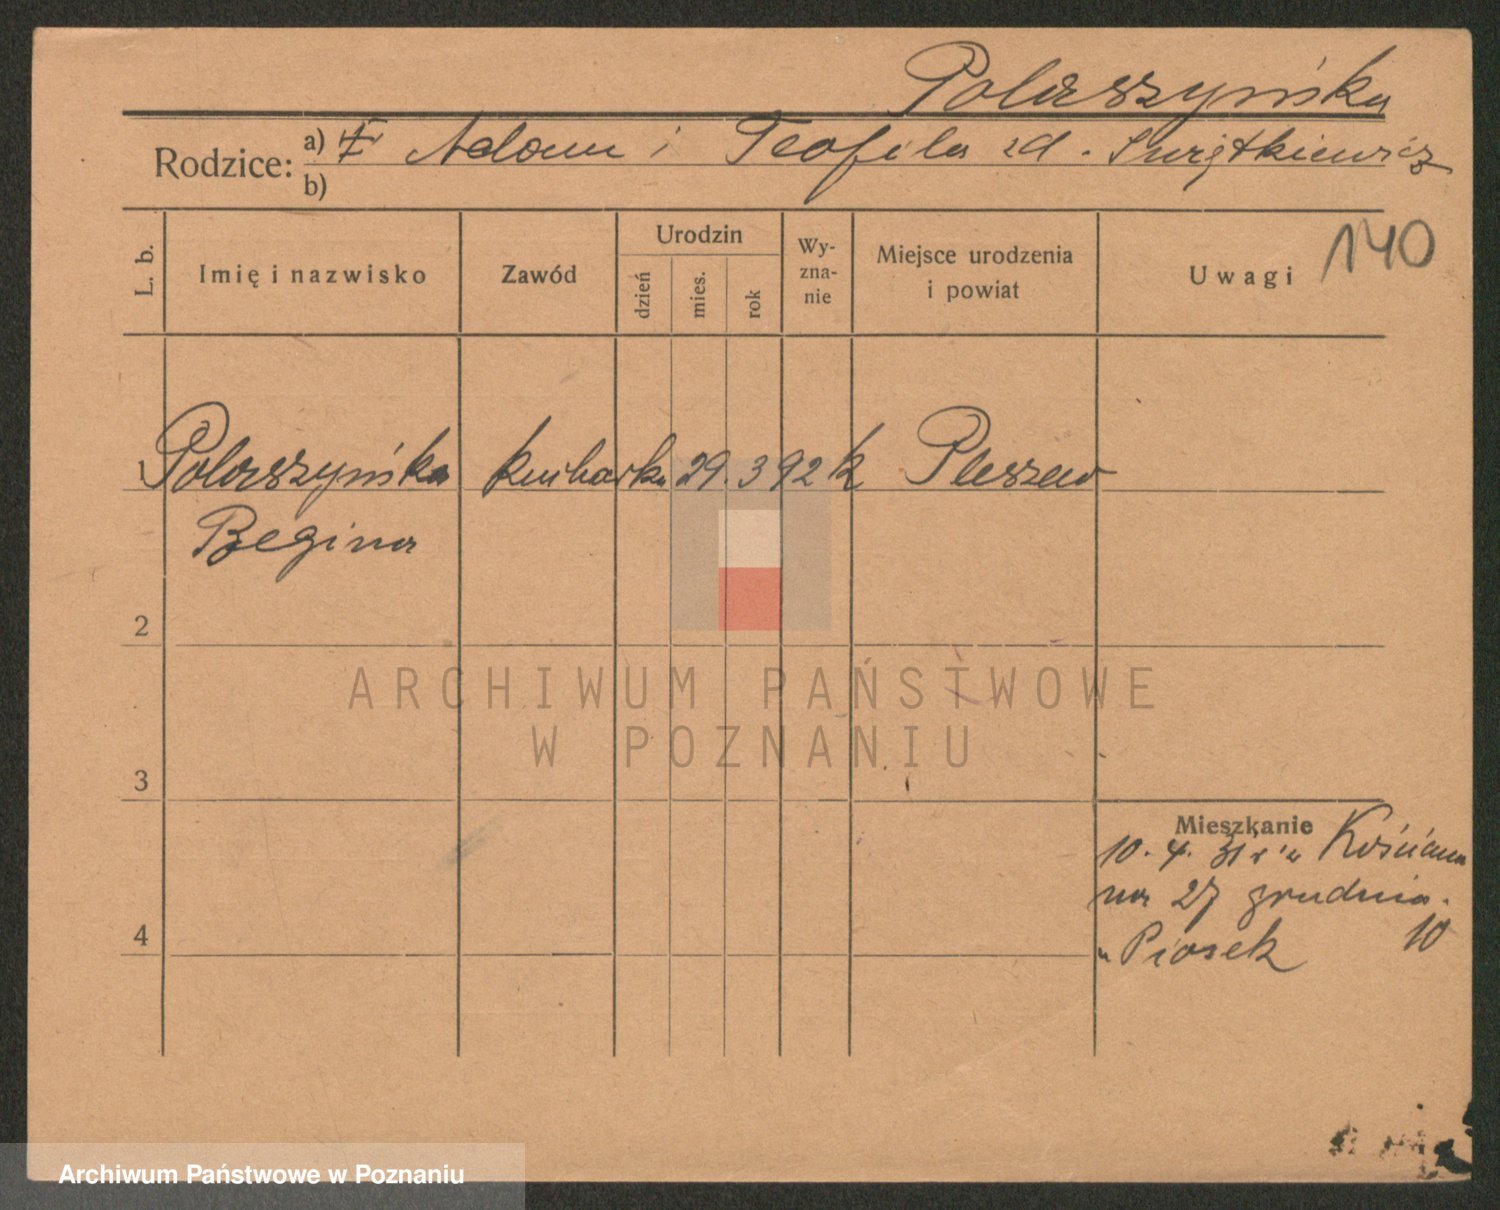 Polaszyńska
Rodzice: a) Adam i Teofila zd. Świątkiewicz
b)
140
L. b. Imię i nazwisko Zawód Urodzin dzień mies. rok Wyznanie Miejsce urodzenia i powiat Uwagi
1 Polaszyńska kucharka 29. 3 92 k Pleszew
Regina
2
ARCHIWUM PAŃSTWOWE
W POZNANIU
3
Mieszkanie
10. 4. 31 r. z Kościana
na 27 grudnia 10
4
u Piosek
Archiwum Państwowe w Poznaniu